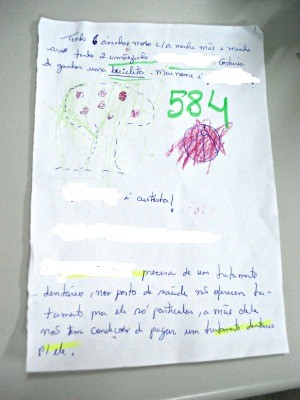 Tenho 6 aninhos moro c/a minha mãe e minha
avó tenho 2 irmãozinho Gostaria
de ganhar uma bicicleta. Meu nome é
584
é autista!
precisa de um tratamento
dentário, nos posto de saúde não oferecem tra-
tamento pra ele só particular, a mãe dele
não tem condições de pagar um tratamento dentário
p/ ele.